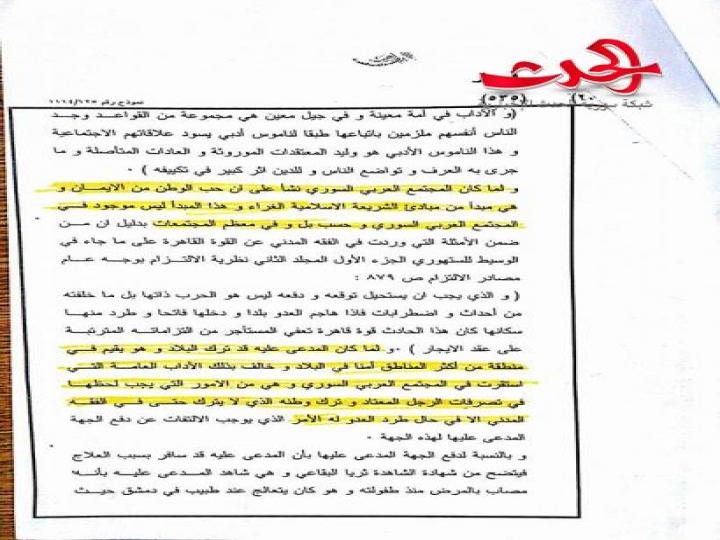 الحدث
شبكة سورية الحدث الإخبارية
نموذج رقم ١١٦٤/١٢٥
(٥٢٥)
(و الآداب في أمة معينة و في جيل معين هي مجموعة من القواعد وجد
الناس أنفسهم ملزمين باتباعها طبقا لناموس أدبي يسود علاقاتهم الاجتماعية
و هذا الناموس الأدبي هو وليد المعتقدات الموروثة و العادات المتأصلة و ما
جرى به العرف و تواضع الناس و للدين اثر كبير في تكييفه ) ٠
و لما كان المجتمع العربي السوري نشأ على ان حب الوطن من الايمان و
هي مبدأ من مبادئ الشريعة الاسلامية الغراء و هذا المبدأ ليس موجود في
المجتمع العربي السوري و حسب بل و في معظم المجتمعات بدليل ان من
ضمن الأمثلة التي وردت في الفقه المدني عن القوة القاهرة على ما جاء في
الوسيط للسنهوري الجزء الأول المجلد الثاني نظرية الالتزام بوجه عام
مصادر الالتزام ص ٨٧٩ :
( و الذي يجب ان يستحيل توقعه و دفعه ليس هو الحرب ذاتها بل ما خلفته
من أحداث و اضطرابات فاذا هاجم العدو بلدا و دخلها فاتحا و طرد منها
سكانها كان هذا الحادث قوة قاهرة تعفي المستأجر من التزاماته المترتبة
على عقد الايجار ) ٠و لما كان المدعى عليه قد ترك البلاد و هو يقيم في
منطقة من أكثر المناطق أمنا في البلاد و خالف بذلك الآداب العامة التي
استقرت في المجتمع العربي السوري و هي من الامور التي يجب لحظها
في تصرفات الرجل المعتاد و ترك وطنه الذي لا يترك حتى في الفقه
المدني الا في حال طرد العدو له الأمر الذي يوجب الالتفات عن دفع الجهة
المدعى عليها لهذه الجهة ٠
و بالنسبة لدفع الجهة المدعى عليها بأن المدعى عليه قد سافر بسبب العلاج
فيتضح من شهادة الشاهدة ثريا البقاعي و هي شاهد المدعى عليه بأنه
مصاب بالمرض منذ طفولته و هو كان يتعالج عند طبيب في دمشق حيث